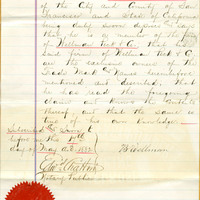 of the City and County of San
Francisco and State of California
being duly sworn deposes and says
that he is a member of the firm
of William & Co. that
said firm of William & Co.
are the exclusive owners of the
Trade Mark & Name hereinbefore
mentioned and described. That
he has read the foregoing
and knows the contents
thereof, and that the same is
true of his own knowledge.
Subscribed and Sworn to
before me this
day of May A.D. 1885
Notary Public